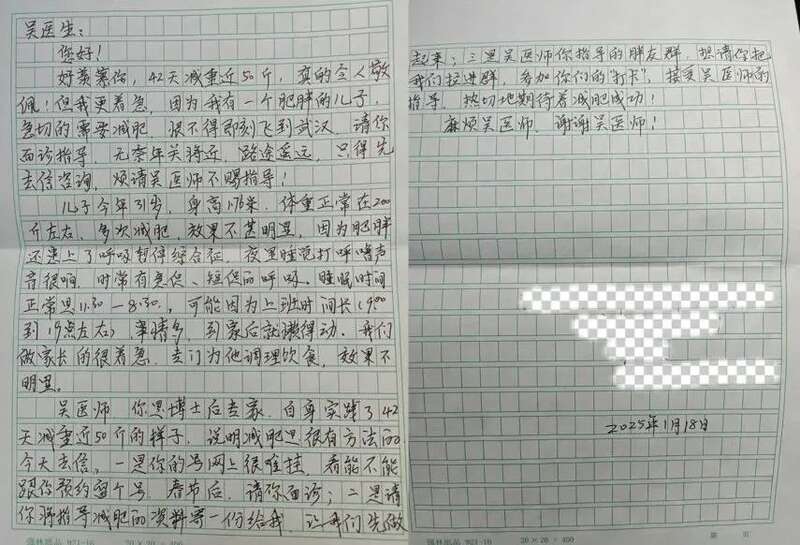 吴医生：
您好！
好羡慕你，42天减重近50斤，真的令人敬
佩！但我更着急，因为我有一个肥胖的儿子，
急切的需要减肥，恨不得即刻飞到武汉，请你
面诊指导，无奈年关将近，路途遥远，只得先
去信咨询，烦请吴医师不赐指导！
儿子今年31岁，身高1.76米，体重正常在200
斤左右，多次减肥，效果不甚明显，因为肥胖
还患上了呼吸暂停综合征，夜里睡觉打呼噜声
音很响，时常有急促、短促的呼吸。睡眠时间
正常是11:30—8:30，可能因为上班时间长（9:00
到19点左右）事情多，到家后就懒得动。我们
做家长的很着急，专门为他调理饮食，效果不
明显。
吴医师，你是博士后专家，自身实践了42
天减重近50斤的样子，说明减肥是很有方法的
今天去信，一是你的号网上很难挂，看能不能
跟你预约留个号，春节后，请你面诊；二是请
你将指导减肥的资料寄一份给我，让我们先做
起来；三是吴医师你指导的胖友群，想请你把
我们拉进群，参加你们的“打卡”，接受吴医师的
指导，热切地期待着减肥成功！
麻烦吴医师，谢谢吴医师！
2025年1月18日
20×20=400
20×20=400
第 页